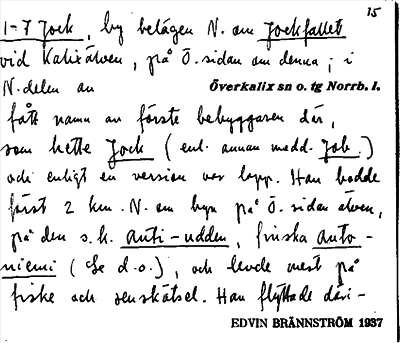 15
1-7 Jock, by belägen N. om Jockfallet
vid Kalixälven, på Ö. sidan om denna; i
N. delen av Överkalix sn o. tg Norrb. l.
fått namn av förste bebyggaren där,
som hette Jock (enl. annan medd. Job.)
och enligt en version var lapp. Han bodde
först 2 km. N. om byn på Ö. sidan älven,
på den s.k. anti-udden, finska auto-
niemi (Se d.o.), och levde mest på
fiske och renskötsel. Han flyttade däri-
EDVIN BRÄNNSTRÖM 1937